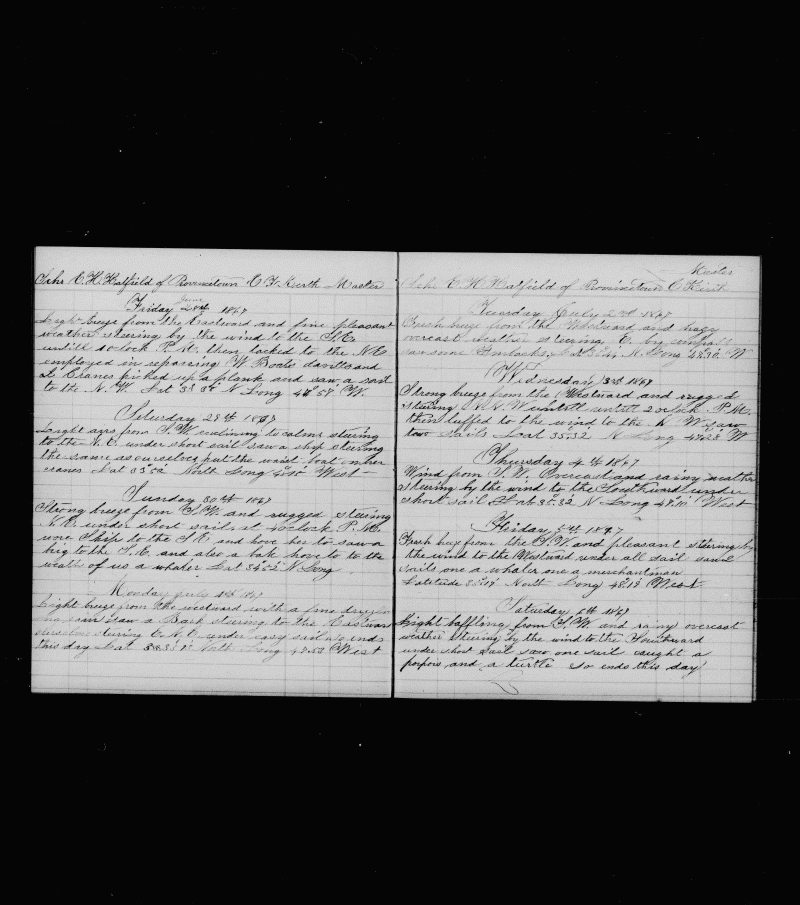 Schr E. H. Hatfield of Provincetown C F Keith Master
June
Friday 28th 1867
Light breeze from the Eastward and fine pleasant
weather steering by the wind to the S.E.
untill 4 oclock P.M. then tacked to the N.E
employed in repairing W. Boat davits and
L. Cranes picked up a plank and saw a sail
to the N. W. Lat N Long W.
Saturday 29th 1867
Light ayrs from S.W. inclining to calms steering
to the N.E. under short sail saw a ship steering
the same as ourselves put the waist boat on her
cranes Lat North Long West
Sunday 30th 1867
Strong breeze from S.W. and rugged steering
N.E. under short sail, at 4 oclock P.M.
wore Ship to the S.E. and hove her to saw a
brig to the S.E. and also a bark hove to to the
west of us a whaler Lat 34°22 N Long
Monday July 1st 1867
Light breeze from the westward with a fine
saw a Bark steering to the Eastward
steering E.N.E. under easy sail so ends
this day Lat North Long 48.50 West
Master
Schr E. H. Hatfield of Provincetown C Keith
Tuesday July 2nd 1867
Fresh breeze from the Westward and hazy
overcast weather steering E. by compass
saw some Lat N. Long W
Wednesday 3rd 1867
Strong breeze from the Westward and rugged
steering N.N.W untill 2 oclock P.M.
then luffed to the wind to the N. W. saw
two sails Lat 35.32 N Long 47.28 W
Thursday 4th 1867
Wind from S.W. Overcast and rainy weather
steering by the wind to the Southward under
short sail Lat 35.32 N Long West
Friday 5th 1867
Fresh breeze from the S.W. and pleasant steering by
the wind to the Westward under all sail saw 2
sails one a whaler one a merchantman
Latitude North Long 48°19 West
Saturday 6th 1867
Light baffling from S.W. and rainy overcast
weather Steering by the wind to the Southward
under short sail saw one sail caught a
porpois and a turtle so ends this day